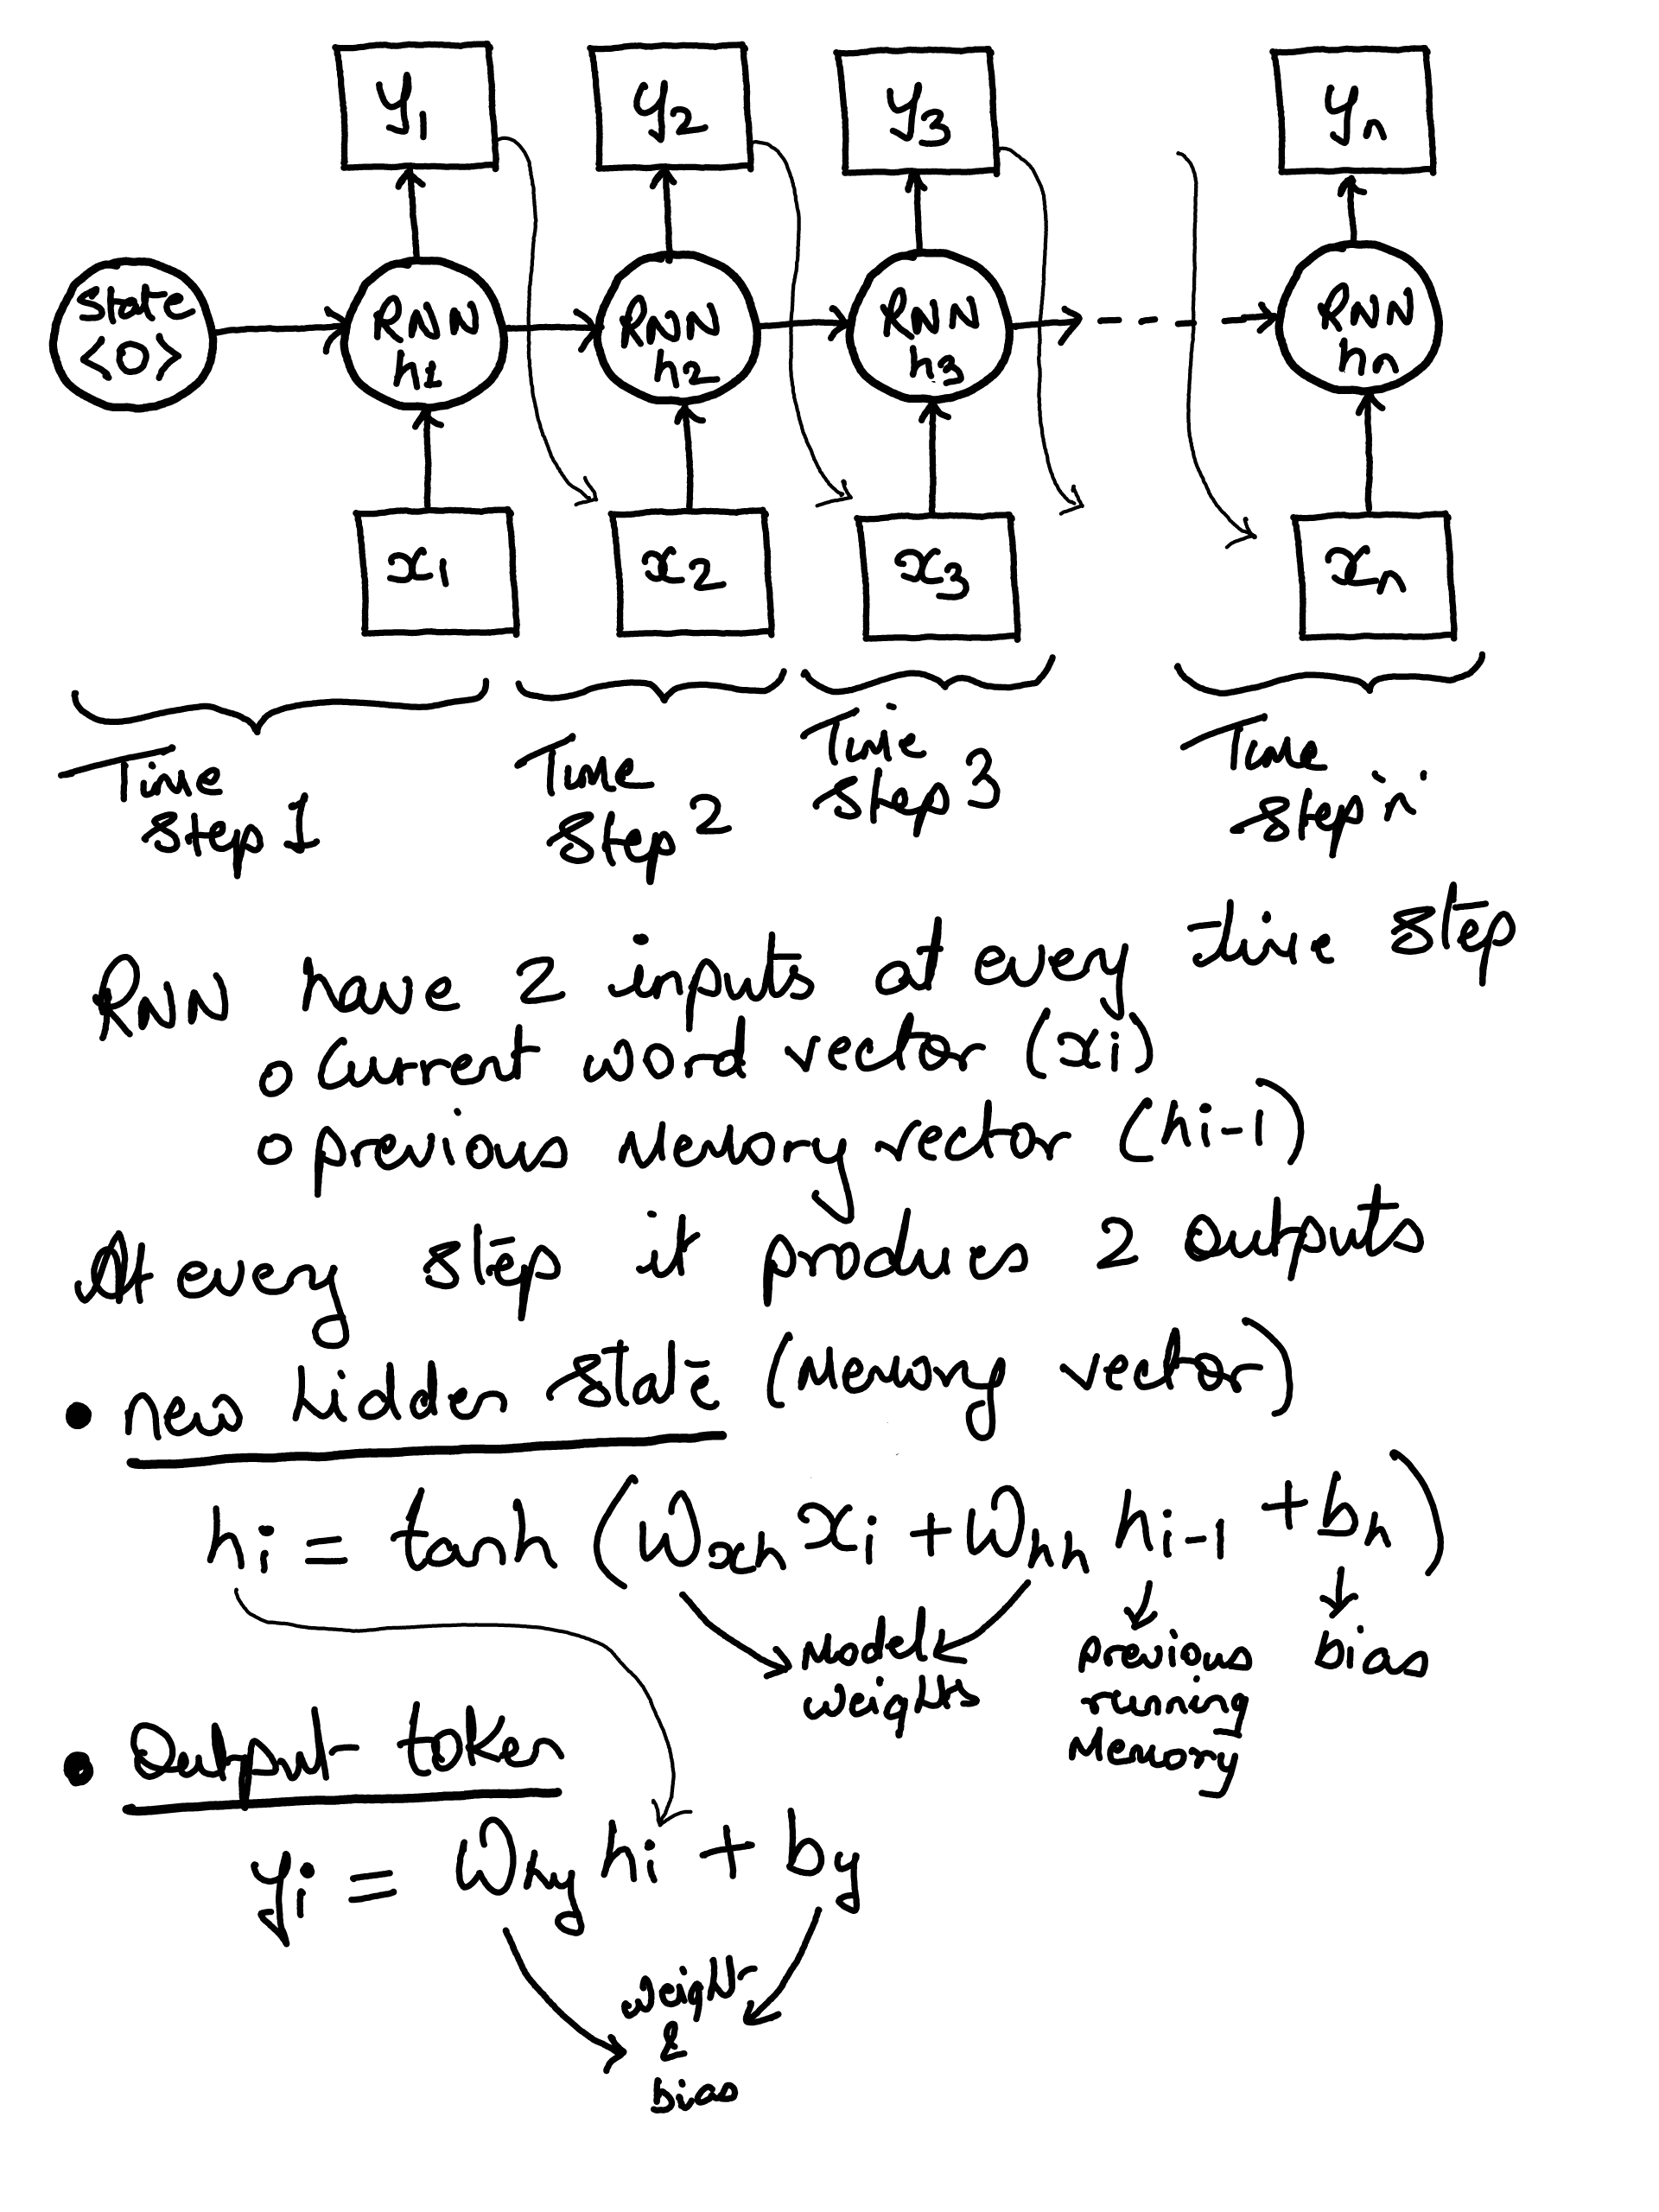 y1 y2 y3 yn
State RNN RNN RNN RNN
<0> h1 h2 h3 hn
x1 x2 x3 xn
Time Time Time Time
Step 1 Step 2 Step 3 Step 'n'
RNN have 2 inputs at every time step
o Current word vector (xi)
o previous Memory vector (hi-1)
At every step it produces 2 outputs
• new hidden state (Memory vector)
hi = tanh (Wxh xi + Whh hi-1 + bh)
Model previous bias
weights running
Memory
• Output token
yi = Why hi + by
weight
&
bias